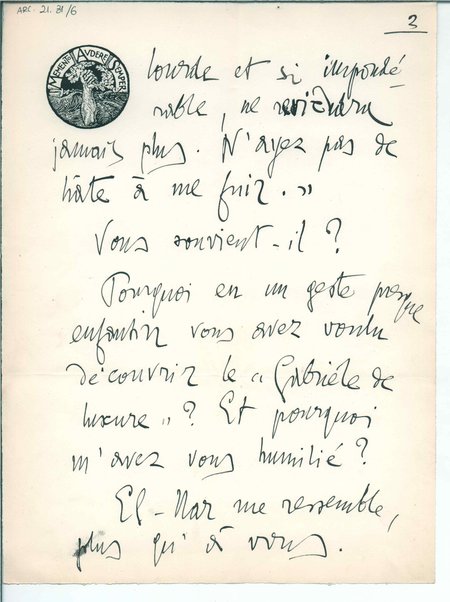 ARC. 21. 31/6
3
MEMENTO AUDERE SEMPER
lourde et si impondé-
rable, ne reviendra
jamais plus. N'ayez pas de
hâte à me fuir."
Vous souvient-il ?
Pourquoi en un geste presque
enfantin vous avez voulu
découvrir le "Gabriele de
luxure" ? Et pourquoi
m'avez vous humilié ?
El-Nar me ressemble,
plus qu'à vous.